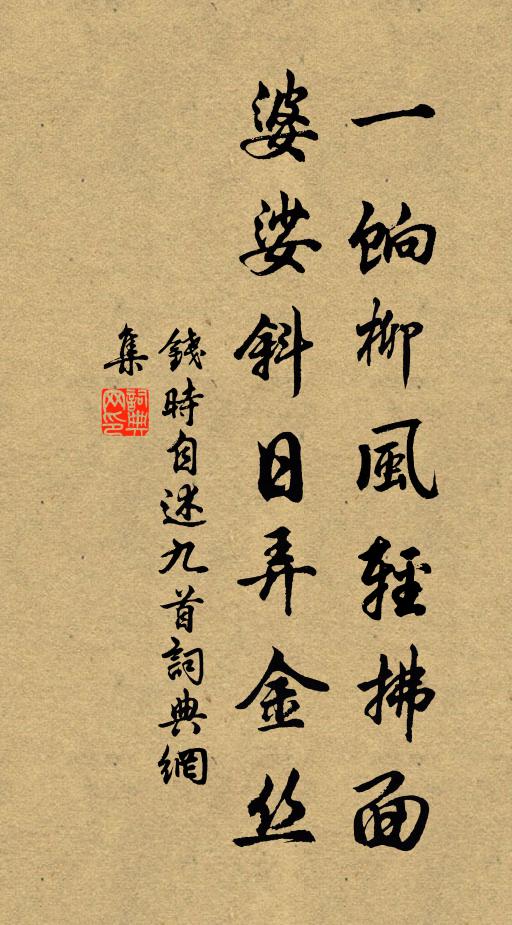 一餉柳風輕拂面
婆娑斜日弄金丝
錢時自述九首詞典網
集
詞典網印